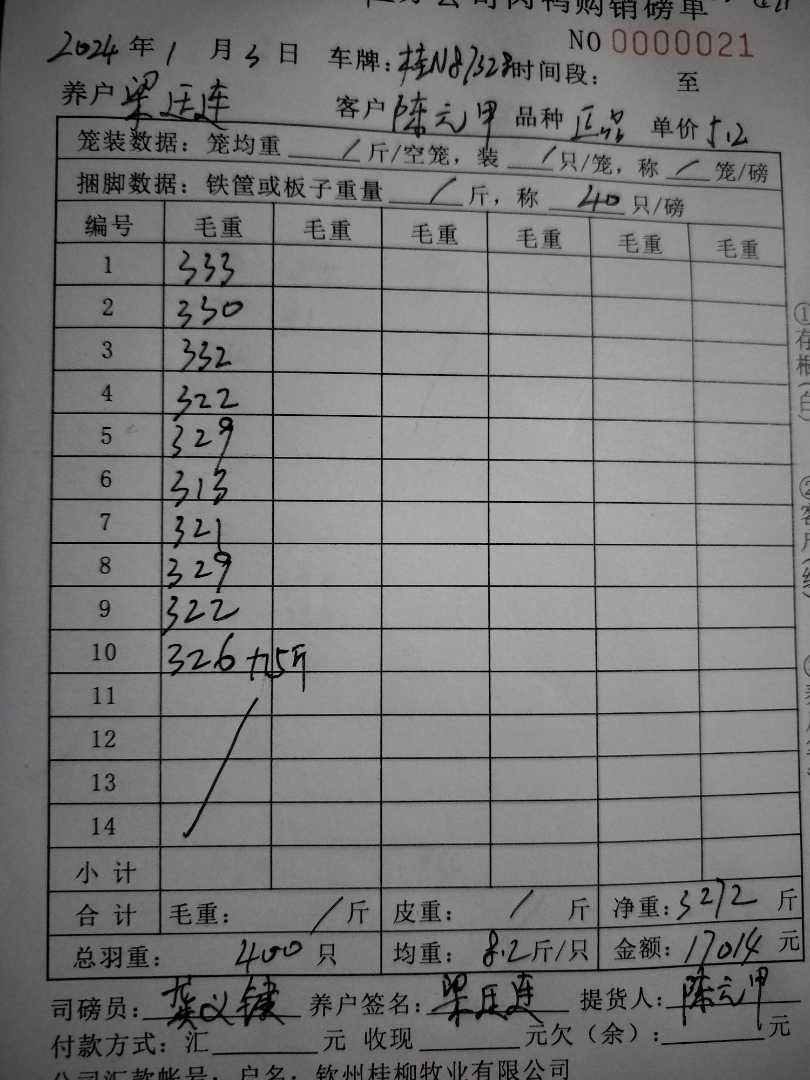 公司肉鸭购销磅单
NO 0000021
2024年1月3日 车牌:桂N87328时间段: 至
养户梁廷连 客户陈元甲 品种正品 单价5.2
笼装数据:笼均重/斤/空笼,装/只/笼,称/笼/磅
捆脚数据:铁筐或板子重量/斤,称40只/磅
编号 毛重 毛重 毛重 毛重 毛重 毛重
1 333
2 330
3 332
4 322
5 329
6 313
7 321
8 329
9 322
10 326+15斤
11
12
13
14
小计
合计 毛重:/斤 皮重:/斤 净重:3272斤
总羽重:400只 均重:8.2斤/只 金额:17014元
司磅员:龚义 养户签名:梁廷连 提货人:陈元甲
付款方式:汇 元 收现 元欠(余): 元
公司汇款帐号:户名:钦州桂柳牧业有限公司